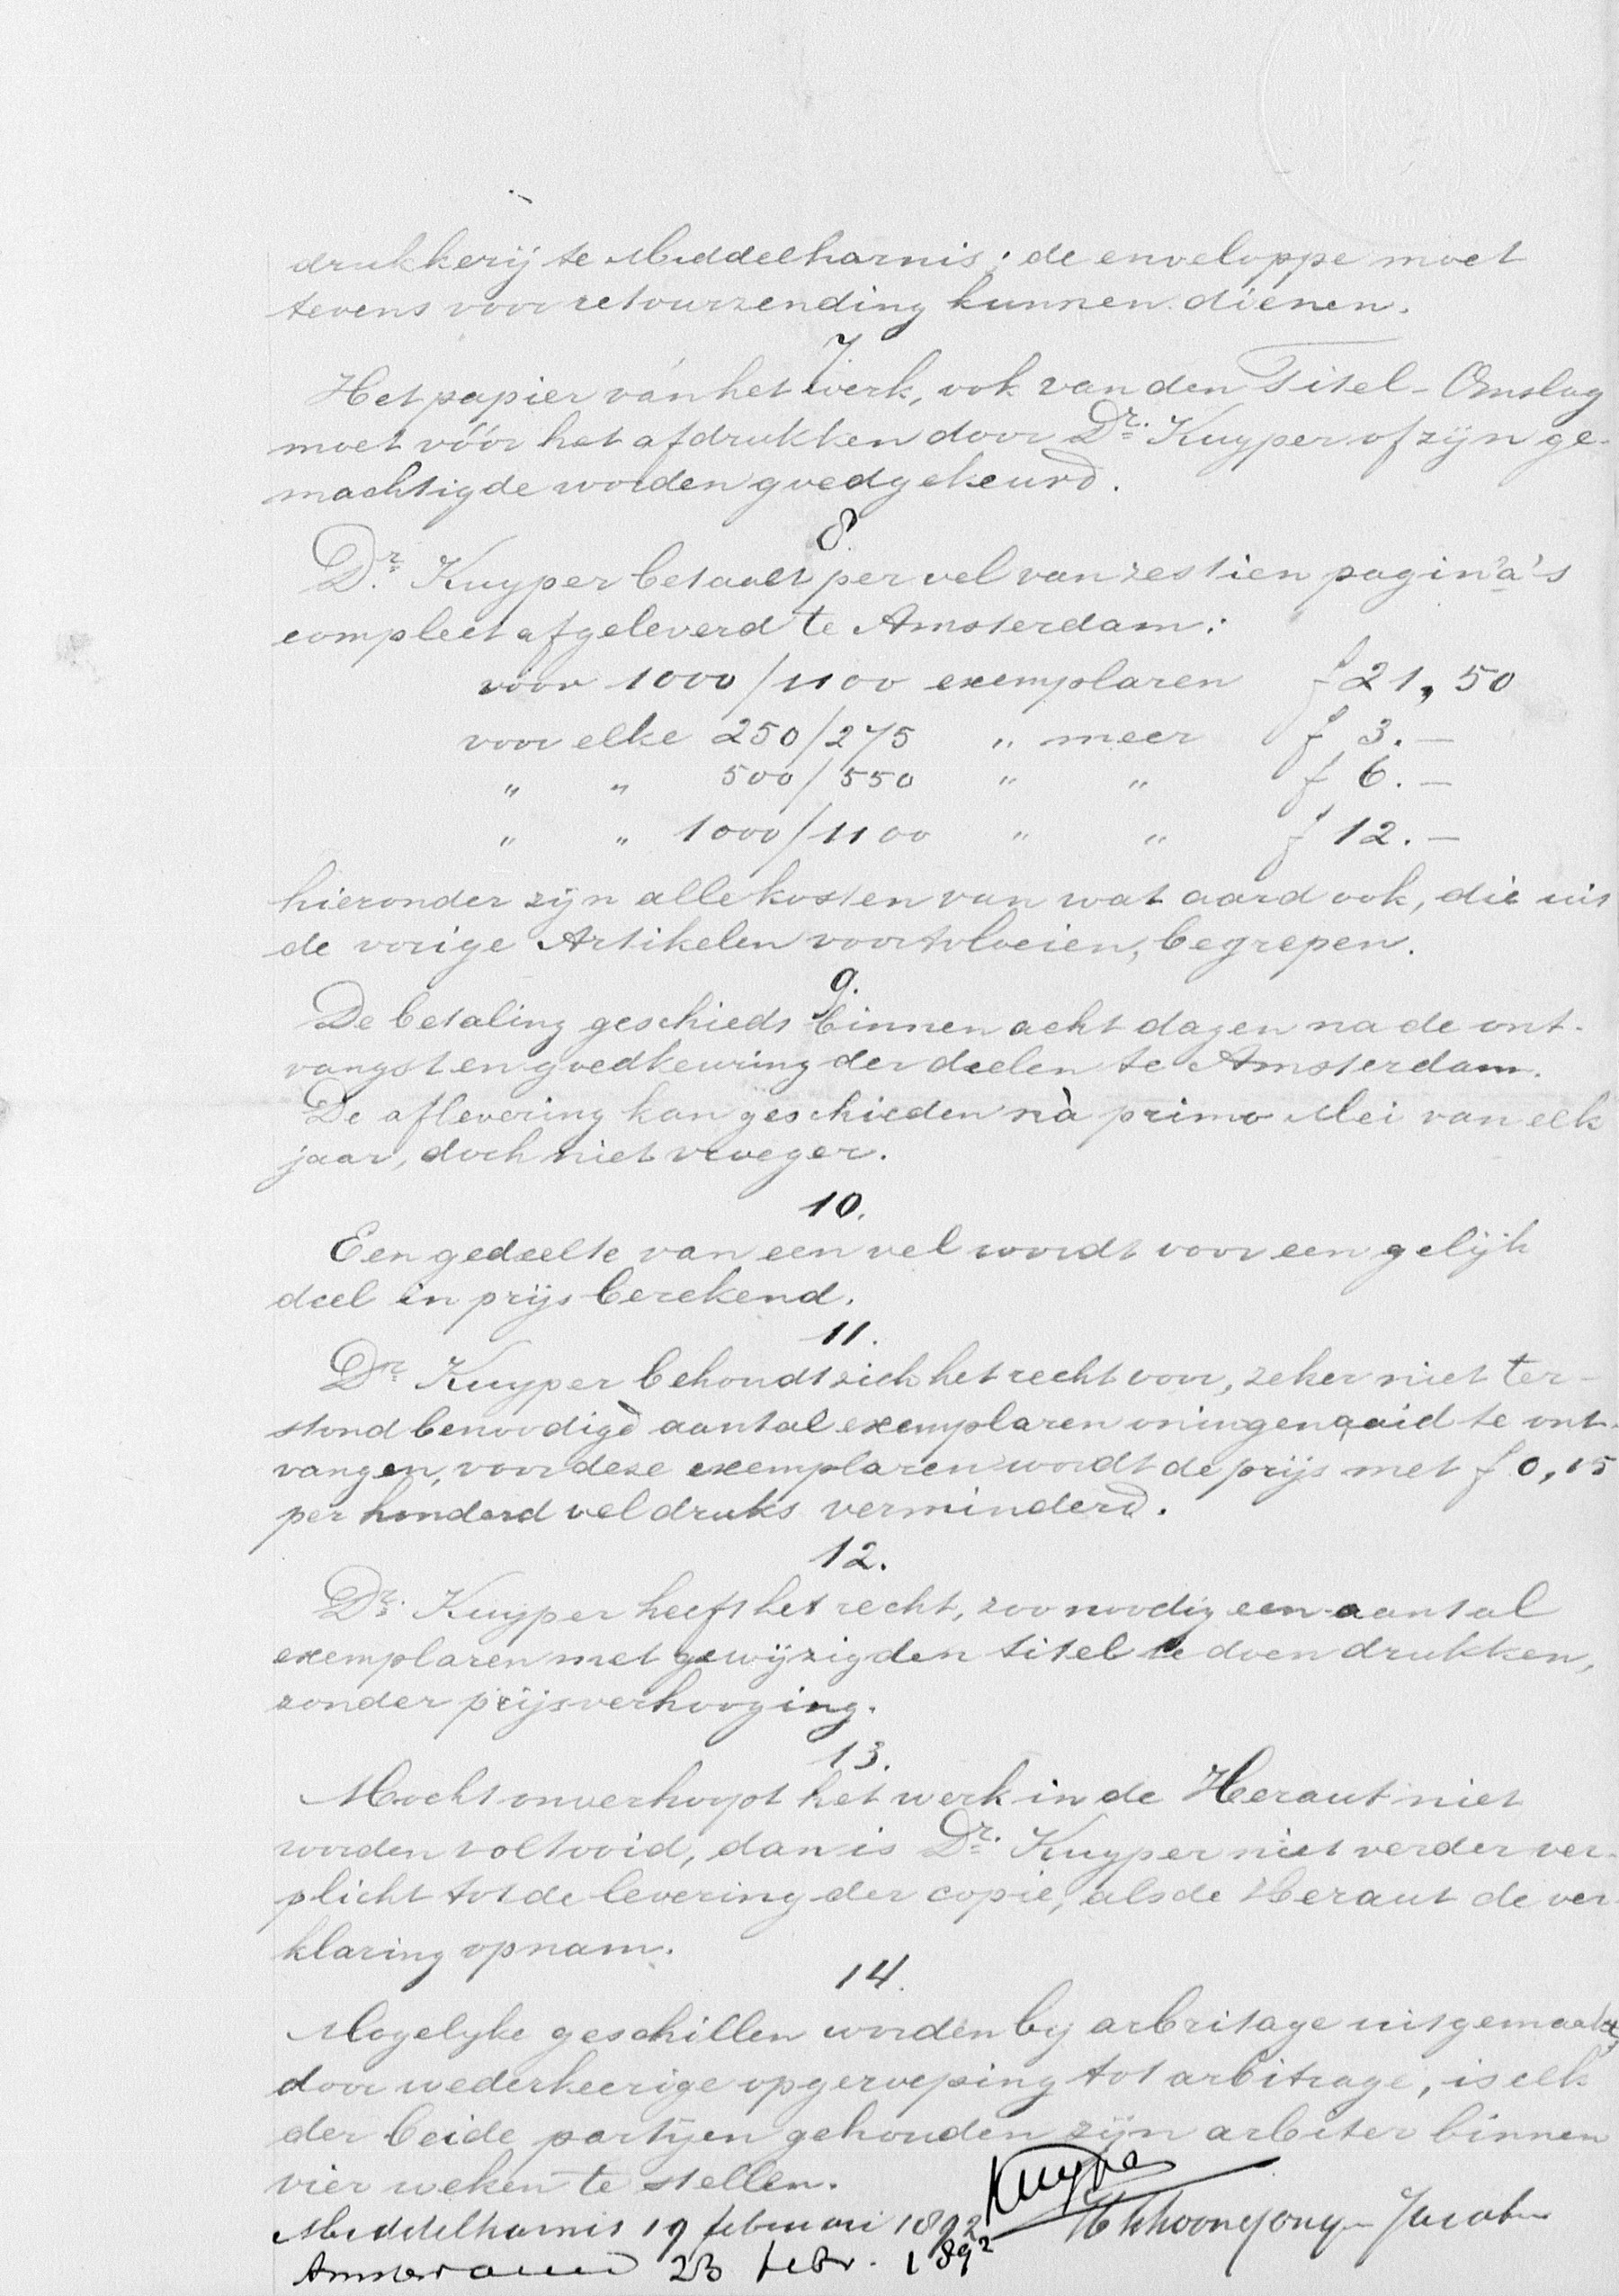 drukkerij te Middelharnis; de enveloppe moet
tevens voor retourzending kunnen dienen.
7.
Het papier van het werk, ook van den Titel-Omslag
moet vóór het afdrukken door Dr. Kuyper of zijn ge-
machtigde worden goedgekeurd.
8.
Dr. Kuyper betaalt per vel van zestien pagina's
compleet afgeleverd te Amsterdam:
voor 1000/1100 exemplaren f 21,50
voor elke 250/275 " meer f 3.—
" " 500/550 " " f 6.—
" " 1000/1100 " " f 12.—
hieronder zijn alle kosten van wat aard ook, die uit
de vorige Artikelen voortvloeien, begrepen.
9.
De betaling geschiedt binnen acht dagen na de ont-
vangst en goedkeuring der deelen te Amsterdam.
De aflevering kan geschieden nà primo Mei van elk
jaar, doch niet vroeger.
10.
Een gedeelte van een vel wordt voor een gelijk
deel in prijs berekend.
11.
Dr. Kuyper behoudt zich het recht voor, zeker niet ter-
stond benoodigd aantal exemplaren oningenaaid te ont-
vangen, voor deze exemplaren wordt de prijs met f 0,15
per honderd vel druks verminderd.
12.
Dr. Kuyper heeft het recht, zoo noodig een aantal
exemplaren met gewijzigden titel te doen drukken,
zonder prijsverhooging.
13.
Mocht onverhoopt het werk in de Heraut niet
worden voltooid, dan is Dr. Kuyper niet verder ver-
plicht tot de levering der copie, als de Heraut de ver-
klaring opnam.
14.
Mogelyke geschillen worden by arbritage uitgemaakt,
door wederkeerige opgeroeping tot arbitrage, is elk
der beide partijen gehouden zijn arbiter binnen
vier weken te stellen.
Kuyper
Middelharnis 19 februari 1892
Amsterdam 23 febr. 1892